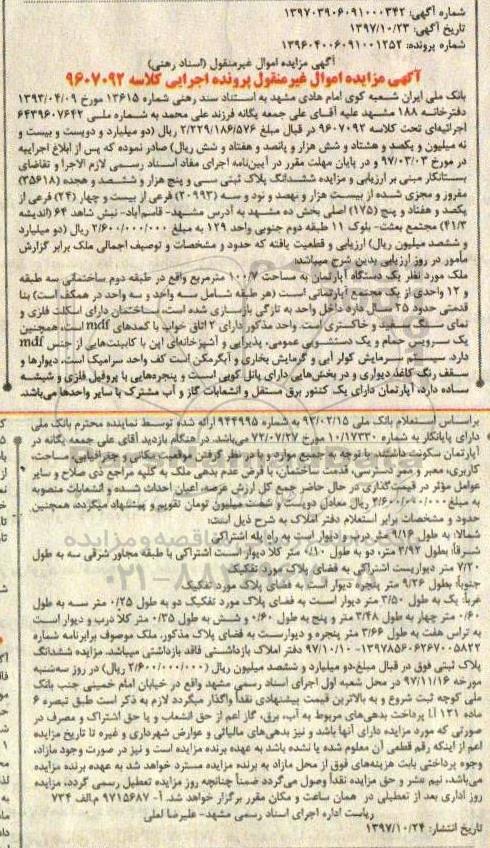 شماره آگهی: ۱۳۹۷۰۳۹۰۶۰۹۱۰۰۰۳۴۲
تاریخ آگهی: ۱۳۹۷/۱۰/۲۳
شماره پرونده: ۱۳۹۶۰۴۰۰۶۰۹۱۰۰۱۲۵۲
آگهی مزایده اموال غیرمنقول (اسناد رهنی)
آگهی مزایده اموال غیرمنقول پرونده اجرایی کلاسه ۹۶۰۷۰۹۲
بانک ملی ایران شعبه کوی امام هادی مشهد به استناد سند رهنی شماره ۱۳۶۱۵ مورخ ۱۳۹۳/۰۴/۰۹
دفترخانه ۱۸۸ مشهد علیه آقای علی جمعه یگانه فرزند علی محمد به شماره ملی ۶۴۳۹۶۰۷۶۴۲
اجرائیه‌ای تحت کلاسه ۹۶۰۷۰۹۲ در قبال مبلغ ۲/۲۲۹/۱۸۶/۵۷۶ ریال (دو میلیارد و دویست و بیست و
نه میلیون و یکصد و هشتاد و شش هزار و پانصد و هفتاد و شش ریال) صادر نموده که پس از ابلاغ اجراییه
در مورخ ۹۷/۰۳/۰۳ و در پایان مهلت مقرر در آیین‌نامه اجرای مفاد اسناد رسمی لازم الاجرا و تقاضای
بستانکار مبنی بر ارزیابی و مزایده ششدانگ پلاک ثبتی سی و پنج هزار و ششصد و هجده (۳۵۶۱۸)
مفروز و مجزی شده از بیست هزار و نهصد و نود و سه (۲۰۹۹۳) فرعی از بیست و چهار (۲۴) فرعی از
یکصد و هفتاد و پنج (۱۷۵) اصلی بخش ده مشهد به آدرس مشهد- قاسم‌آباد- نبش شاهد ۶۴ (اندیشه
۴۱/۳) مجتمع بعثت- بلوک ۱۱ طبقه دوم جنوبی واحد ۱۲۹ به مبلغ ۲/۶۰۰/۰۰۰/۰۰۰ ریال (دو میلیارد
و ششصد میلیون ریال) ارزیابی و قطعیت یافته که حدود و مشخصات و توصیف اجمالی ملک برابر گزارش
مأمور در روز ارزیابی بدین شرح میباشد:
ملک مورد نظر یک دستگاه آپارتمان به مساحت ۱۰۰/۷ مترمربع واقع در طبقه دوم ساختمانی سه طبقه
و ۱۲ واحدی از یک مجتمع آپارتمانی است (هر طبقه شامل سه واحد و سه واحد در همکف است) بنا
قدمتی حدود ۲۵ سال دارد داخل واحد به تازگی بازسازی شده است، ساختمان دارای اسکلت فلزی و
نمای سنگ سفید و خاکستری است. واحد مذکور دارای ۲ اتاق خواب با کمدهای mdf است، همچنین
یک سرویس حمام و یک دستشویی عمومی، پذیرایی و آشپزخانه‌ای اپن با کابینت‌هایی از جنس mdf
دارد. سیستم سرمایش کولر آبی و گرمایش بخاری و آبگرمکن است کف واحد سرامیک است، دیوارها و
سقف رنگ کاغذ دیواری و در بخش‌هایی دارای پانل کوبی است و پنجره‌هایی با پروفیل فلزی و شیشه
ساده دارد، آپارتمان دارای یک کنتور برق مستقل و انشعابات گاز و آب مشترک با سایر واحدها می‌باشد.
براساس استعلام بانک ملی ۹۳/۰۲/۱۵ به شماره ۹۴۴۹۹۵ ارائه شده توسط نماینده محترم بانک ملی
دارای پایانکار به شماره ۱۰/۱۷۳۳۰ مورخ ۷۲/۰۷/۲۷ می‌باشد. در هنگام بازدید آقای علی جمعه یگانه در
آپارتمان سکونت داشتند. با توجه به جمیع موارد و با در نظر گرفتن موقعیت مکانی و جغرافیایی، مساحت،
کاربری، معبر و ممر دسترسی، قدمت ساختمان، با فرض عدم بدهی ملک به کلیه مراجع ذی صلاح و سایر
عوامل مؤثر در قیمت‌گذاری در حال حاضر جمع کل ارزش عرصه، اعیان احداث شده و انشعابات منصوبه
به مبلغ ۲/۶۰۰/۰۰۰/۰۰۰ ریال معادل دویست و شصت میلیون تومان تقویم و پیشنهاد میگردد، همچنین
حدود و مشخصات برابر استعلام دفتر املاک به شرح ذیل است:
شمالا: به طول ۹/۱۶ متر درب و دیوار است به راه پله اشتراکی
شرقا: بطول ۳/۹۲ متر، دو به طول ۰/۱۰ متر کلا دیوار است اشتراکی با طبقه مجاور شرقی سه به طول
۷/۲۰ متر دیواریست اشتراکی به فضای پلاک مورد تفکیک
جنوبا: بطول ۹/۲۶ متر پنجره دیوار است به فضای پلاک مورد تفکیک
غربا: یک به طول ۳/۵۰ متر دیوار است به فضای پلاک مورد تفکیک دو به طول ۰/۲۵ متر سه به طول
۰/۶۰ متر چهار به طول ۳/۴۸ متر و پنج به طول ۰/۶۰ و شش به طول ۰/۳۵ متر کلا درب و دیوار است
به تراس هفت به طول ۳/۶۶ متر پنجره و دیواریست به فضای پلاک مذکور. ملک موصوف برابرنامه شماره
۱۳۹۷۸۵۶۰۶۲۶۷۰۰۵۸۲۲- ۹۷/۱۰/۱۰ دفتر املاک بازداشتی فاقد بازداشتی میباشد. مزایده ششدانگ
پلاک ثبتی فوق در قبال مبلغ دو میلیارد و ششصد میلیون ریال (۲/۶۰۰/۰۰۰/۰۰۰ ریال) در روز سه‌شنبه
مورخه ۹۷/۱۱/۱۶ در محل شعبه اول اجرای اسناد رسمی مشهد واقع در خیابان امام خمینی جنب بانک
ملی کوچه ثبت شروع و به بالاترین قیمت پیشنهادی نقداً واگذار میگردد لازم به ذکر است طبق تبصره ۶
ماده ۱۲۱ آ.ا پرداخت بدهی‌های مربوط به آب، برق، گاز اعم از حق انشعاب و یا حق اشتراک و مصرف در
صورتی که مورد مزایده دارای آنها باشد و نیز بدهی‌های مالیاتی و عوارض شهرداری و غیره تا تاریخ مزایده
اعم از اینکه رقم قطعی آن معلوم شده یا نشده باشد به عهده برنده مزایده است و نیز در صورت وجود مازاد،
وجوه پرداختی بابت هزینه‌های فوق از محل مازاد به برنده مزایده مسترد خواهد شد به عهده برنده مزایده
می‌باشد، نیم عشر و حق مزایده نقداً وصول می‌گردد ضمناً چنانچه روز مزایده تعطیل رسمی گردد، مزایده
روز اداری بعد از تعطیلی در همان ساعت و مکان مقرر برگزار خواهد شد. آ- ۹۷۱۵۶۸۷ م.الف ۷۳۴
ریاست اداره اجرای اسناد رسمی مشهد- علیرضا لعلی
تاریخ انتشار: ۱۳۹۷/۱۰/۲۴